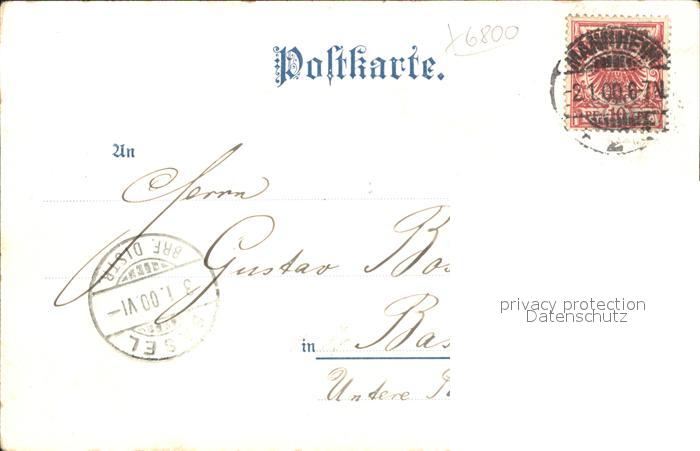 x6800
Postkarte.
MANNHEIM
2.1.00.6-7N.
2
An
Herrn
Gustav Bos
BASEL
BRF. DISTR.
3.I.00.VI-
in Bas
Untere
privacy protection
Datenschutz